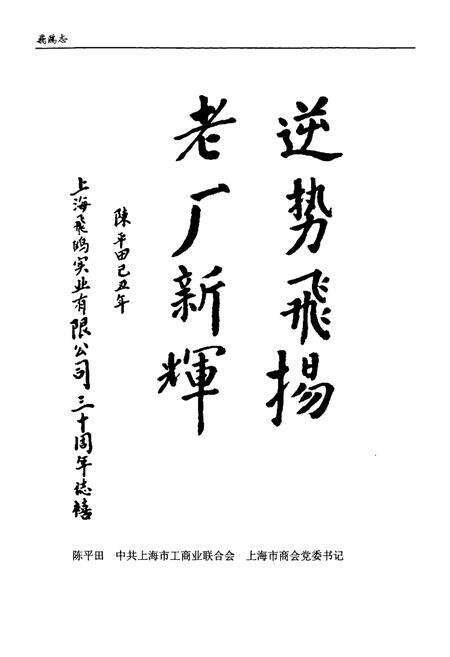 逆势飛揚
老厂新輝
陳平田己丑年
上海飛鸣实业有限公司三十周年志禧
陈平田 中共上海市工商业联合会 上海市商会党委书记